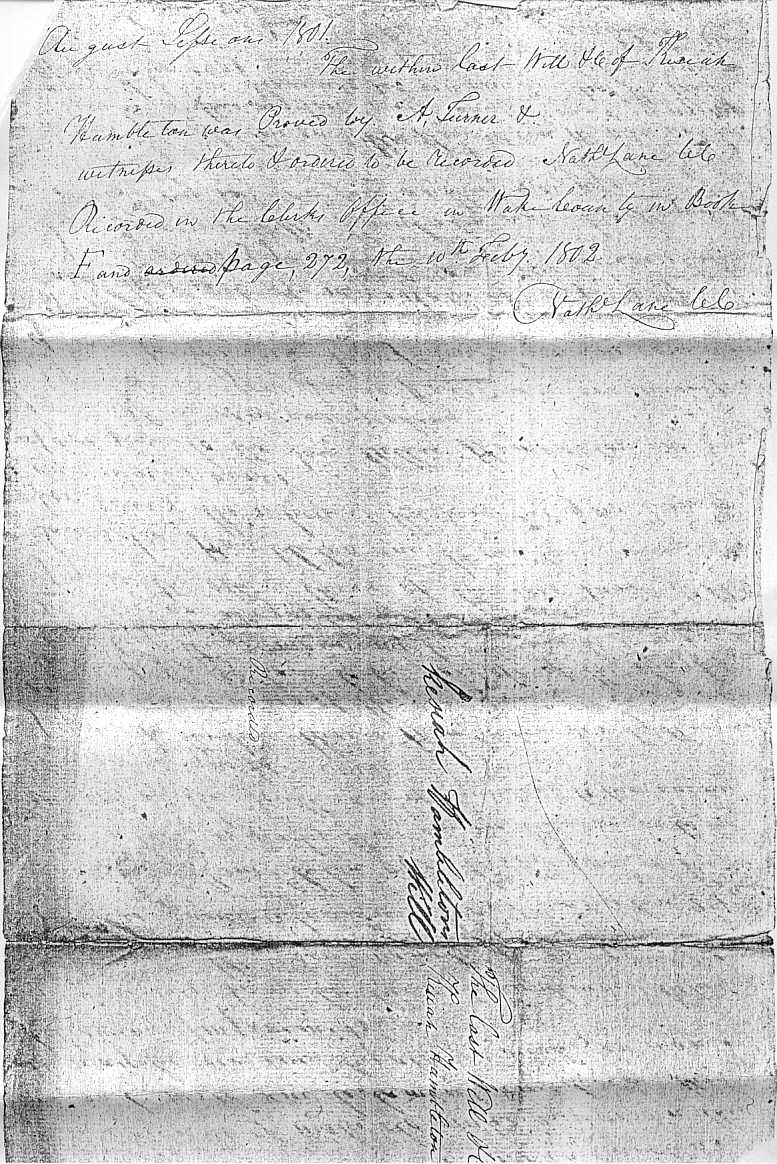 August Sessions 1801.
The within last Will &c of Keziah
Hambleton was Proved by A, Turner &
witnesses thereto & ordered to be recorded Nathl Lane CC
Recorded in the Clerks Office in Wake County in Book
F and ordered page, 272, the 10th Feby. 1802
Nathl Lane CC
Recorded
Kesiah Hambleton
Will
The last Will &c
Kiziah Hambleton